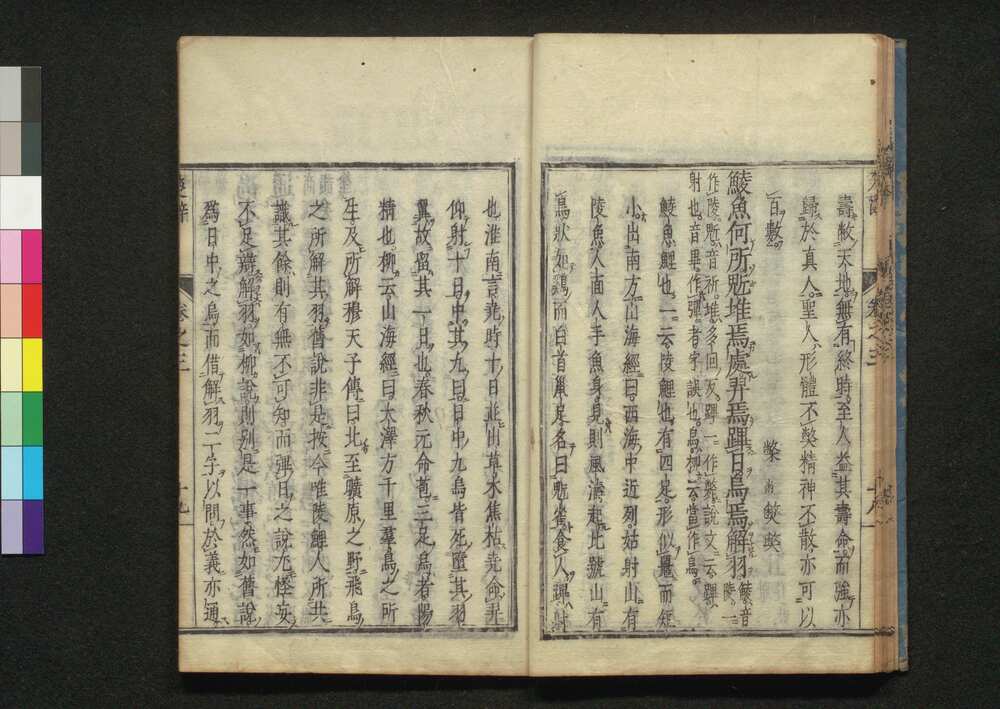 壽敝天地無有終時至人益其壽命而強亦
歸於真人聖人形體不獘精神不散亦可以
百數
鯪魚何所䰢堆焉處羿焉彃日烏焉解羽鯪音
陵一
作陵䰢音祈堆多回反彃一作說文云彃
射也音畢作彈者字誤也烏柳云當作鳥
鯪魚鯉也一云陵鯉也有四足形似鼉而短
小出南方山海經曰西海中近列姑射山有
陵魚人面人手魚身見則風濤起北號山有
鳥狀如鷄而白首鼠足名曰䰢雀食人彃射
也淮南言堯時十日並出草木焦枯堯命羿
仰射十日中其九日日中九烏皆死墮其羽
翼故留其一日也春秋元命苞三足烏者陽
精也柳云山海經曰大澤方千里羣鳥之所
生及所解穆天子傳曰北至曠原之野飛鳥
之所解其羽舊說非是按今唯陵鯉人所共
識其餘則有無不可知而彈日之說尤怪妄
不足辯解羽如柳說則別是一事然如舊說
爲日中之烏而借解羽二字以問於義亦通
卷之三
十九